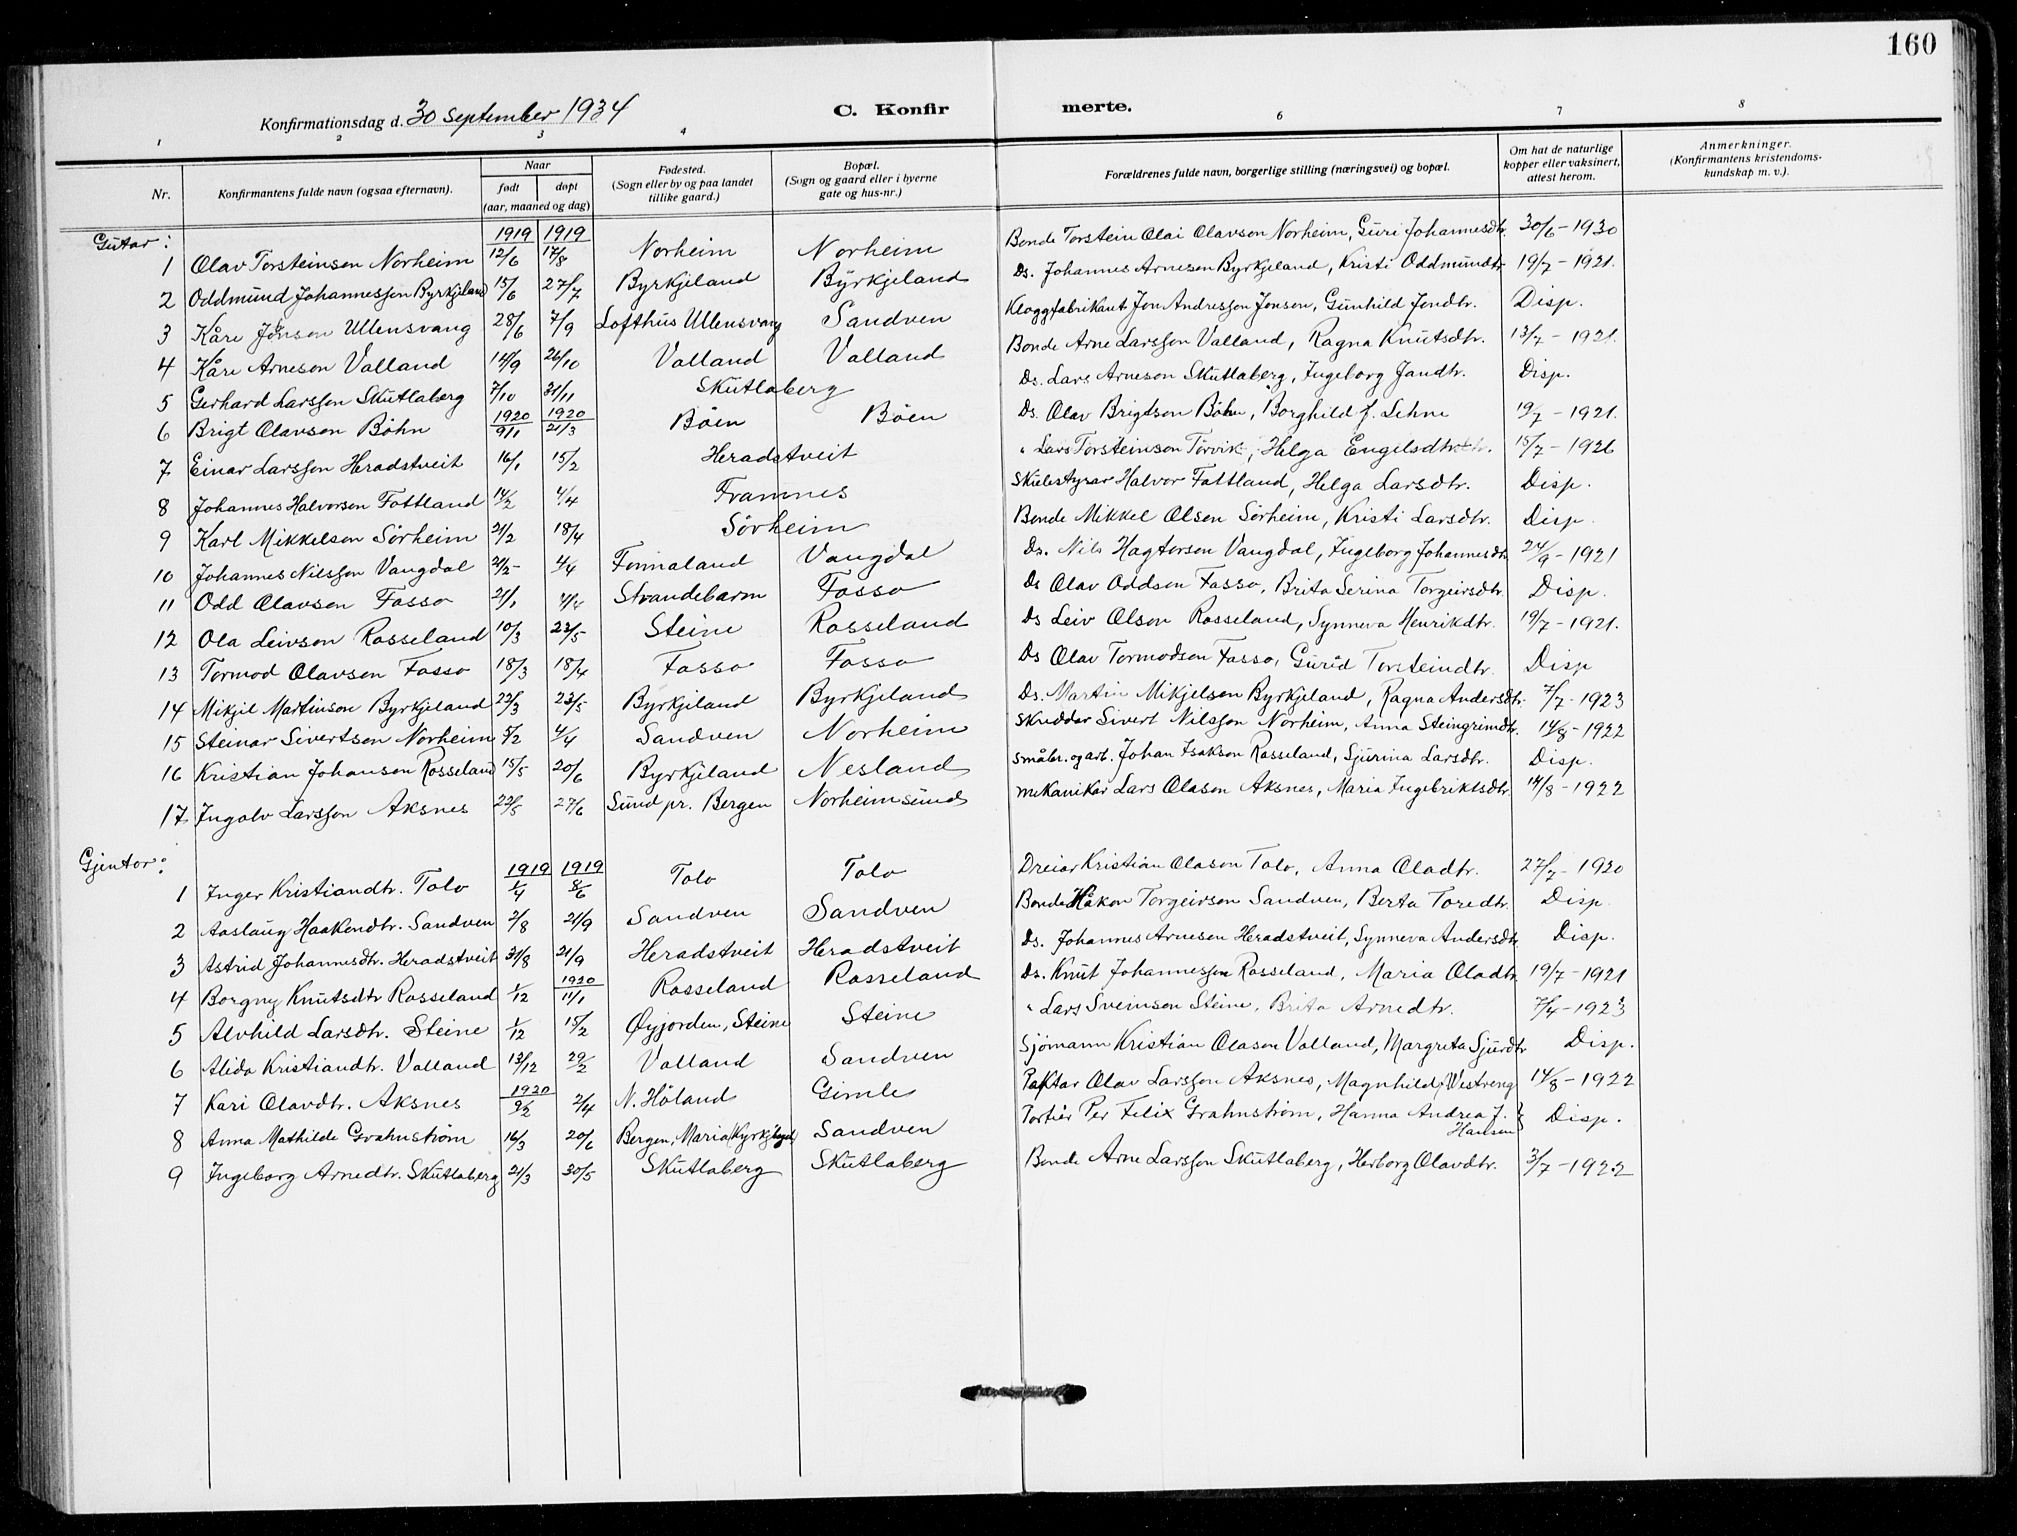 160
Konfirmationsdag d. 30 september 1934 C. Konfir merte.
1 2 3 4 6 7 8
Nr. Konfirmantens fulde navn (ogsaa efternavn). Naar født døpt (aar, maaned og dag) Fødested. (Sogn eller by og paa landet tillike gaard.) Bopæl. (Sogn og gaard eller i byerne gate og hus-nr.) Forældrenes fulde navn, borgerlige stilling (næringsvei) og bopæl. Om hat de naturlige kopper eller vaksinert, attest herom. Anmerkninger. (Konfirmantens kristendoms- kundskap m. v.).
Gutar: 1919 1919
1 Olav Torsteinson Norheim 12/6 17/8 Norheim Norheim Bonde Torstein Olai Olavson Norheim, Guri Johannesdtr. 30/6 - 1930
2 Oddmund Johannesson Byrkjeland 15/6 27/7 Byrkjeland Byrkjeland Ds. Johannes Arneson Byrkjeland, Kristi Oddmundtr. 19/7 - 1921.
3 Kåre Jonson Ullensvang 28/6 7/9 Lofthus Ullensvang Sandven Kloggfabrikant Jon Andresson Jonson, Gunhild Jondtr. Disp.
4 Kåre Arneson Valland 14/9 26/10 Valland Valland Bonde Arne Larsson Valland, Ragna Knutsdtr. 13/7 - 1921.
5 Gerhard Larsson Skutlaberg 7/10 31/11 Skutlaberg Ds. Lars Arneson Skutlaberg, Ingeborg Jandtr. Disp.
6 Brigt Olavson Böhn 1920 9/1 1920 21/3 Böen Böen Ds. Olav Brigtson Böhn, Borghild f. Lehne 19/7 - 1921.
7 Einar Larsson Heradstveit 16/1 15/2 Heradstveit " Lars Torsteinson Torvik, Helga Engelsdtr. 15/7 - 1926
8 Johannes Halvorson Fottland 14/2 4/4 Framnes Skulestyrar Halvor Fottland, Helga Larsdtr. Disp.
9 Karl Mikkelson Sörheim 21/2 18/4 Sörheim Bonde Mikkel Olson Sörheim, Kristi Larsdtr. Disp.
10 Johannes Nilsson Vangdal 21/2 4/4 Fonnaland Vangdal Ds. Nils Hagtorson Vangdal, Ingeborg Johannesdtr. 24/9 - 1921
11 Odd Olavson Fosso 21/1 4/4 Strandebarm Fosso Ds Olav Oddson Fosso, Brita Serina Torgeirsdtr. Disp.
12 Ola Leivson Rosseland 10/3 23/5 Steine Rosseland Ds Leiv Olson Rosseland, Synneva Henrikdtr. 19/7 - 1921.
13 Tormod Olavson Fosso 18/3 18/4 Fosso Fosso Ds Olav Tormodson Fosso, Gurid Torsteindtr. Disp
14 Mikjil Martinson Byrkjeland 22/3 23/5 Byrkjeland Byrkjeland Ds. Martin Mikjelson Byrkjeland, Ragna Andersdtr. 7/7 - 1923
15 Steinar Sivertson Norheim 5/2 4/4 Sandven Norheim Skreddar Sivert Nilsson Norheim, Anna Steingrimdtr. 14/8 - 1922
16 Kristian Johanson Rosseland 15/5 20/6 Byrkjeland Nesland Småbr. og arb. Johan Isakson Rosseland, Sjurina Larsdtr. Disp.
17 Ingolv Larsson Aksnes 22/5 27/6 Sund pr. Bergen Norheimsund Mekanikar Lars Olason Aksnes, Maria Ingebriktsdtr. 14/8 - 1922
Gjentor: 1919 1919
1 Inger Kristiandtr. Tolo 1/4 8/6 Tolo Tolo Dreiar Kristian Olason Tolo, Anna Oladtr. 27/7 - 1920
2 Aaslaug Haakondtr. Sandven 2/8 21/9 Sandven Sandven Bonde Håkon Torgeirson Sandven, Berta Toredtr. Disp.
3 Astrid Johannesdtr. Heradstveit 31/8 21/9 Heradstveit Heradstveit Ds. Johannes Arneson Heradstveit, Synneva Andersdtr. Disp.
4 Borgny Knutsdtr Rosseland 1/12 1920 11/1 Rosseland Rosseland Ds. Knut Johannesson Rosseland, Maria Oladtr. 19/7 - 1921
5 Alvhild Larsdtr. Steine 1/12 15/2 Øyjorden, Steine Steine " Lars Sveinson Steine, Brita Arnedtr. 7/4 - 1923
6 Alida Kristiandtr. Valland 13/12 29/2 Valland Sandven Sjømann Kristian Olason Valland, Margreta Sjurdtr Disp.
7 Kari Olavdtr. Aksnes 1920 9/2 2/4 N. Höland Gimle Paktar Olav Larsson Aksnes, Magnhild f. Westreng 14/8 - 1922
8 Anna Mathilde Grahnstrøm 16/3 20/6 Bergen, Maria Kyrkjesogn Sandven Portier Per Felix Grahnstrøm, Hanna Andrea f. Hansen Disp.
9 Ingeborg Arnedtr. Skutlaberg 21/3 30/5 Skutlaberg Skutlaberg Bonde Arne Larsson Skutlaberg, Herborg Olavdtr. 3/7 - 1922